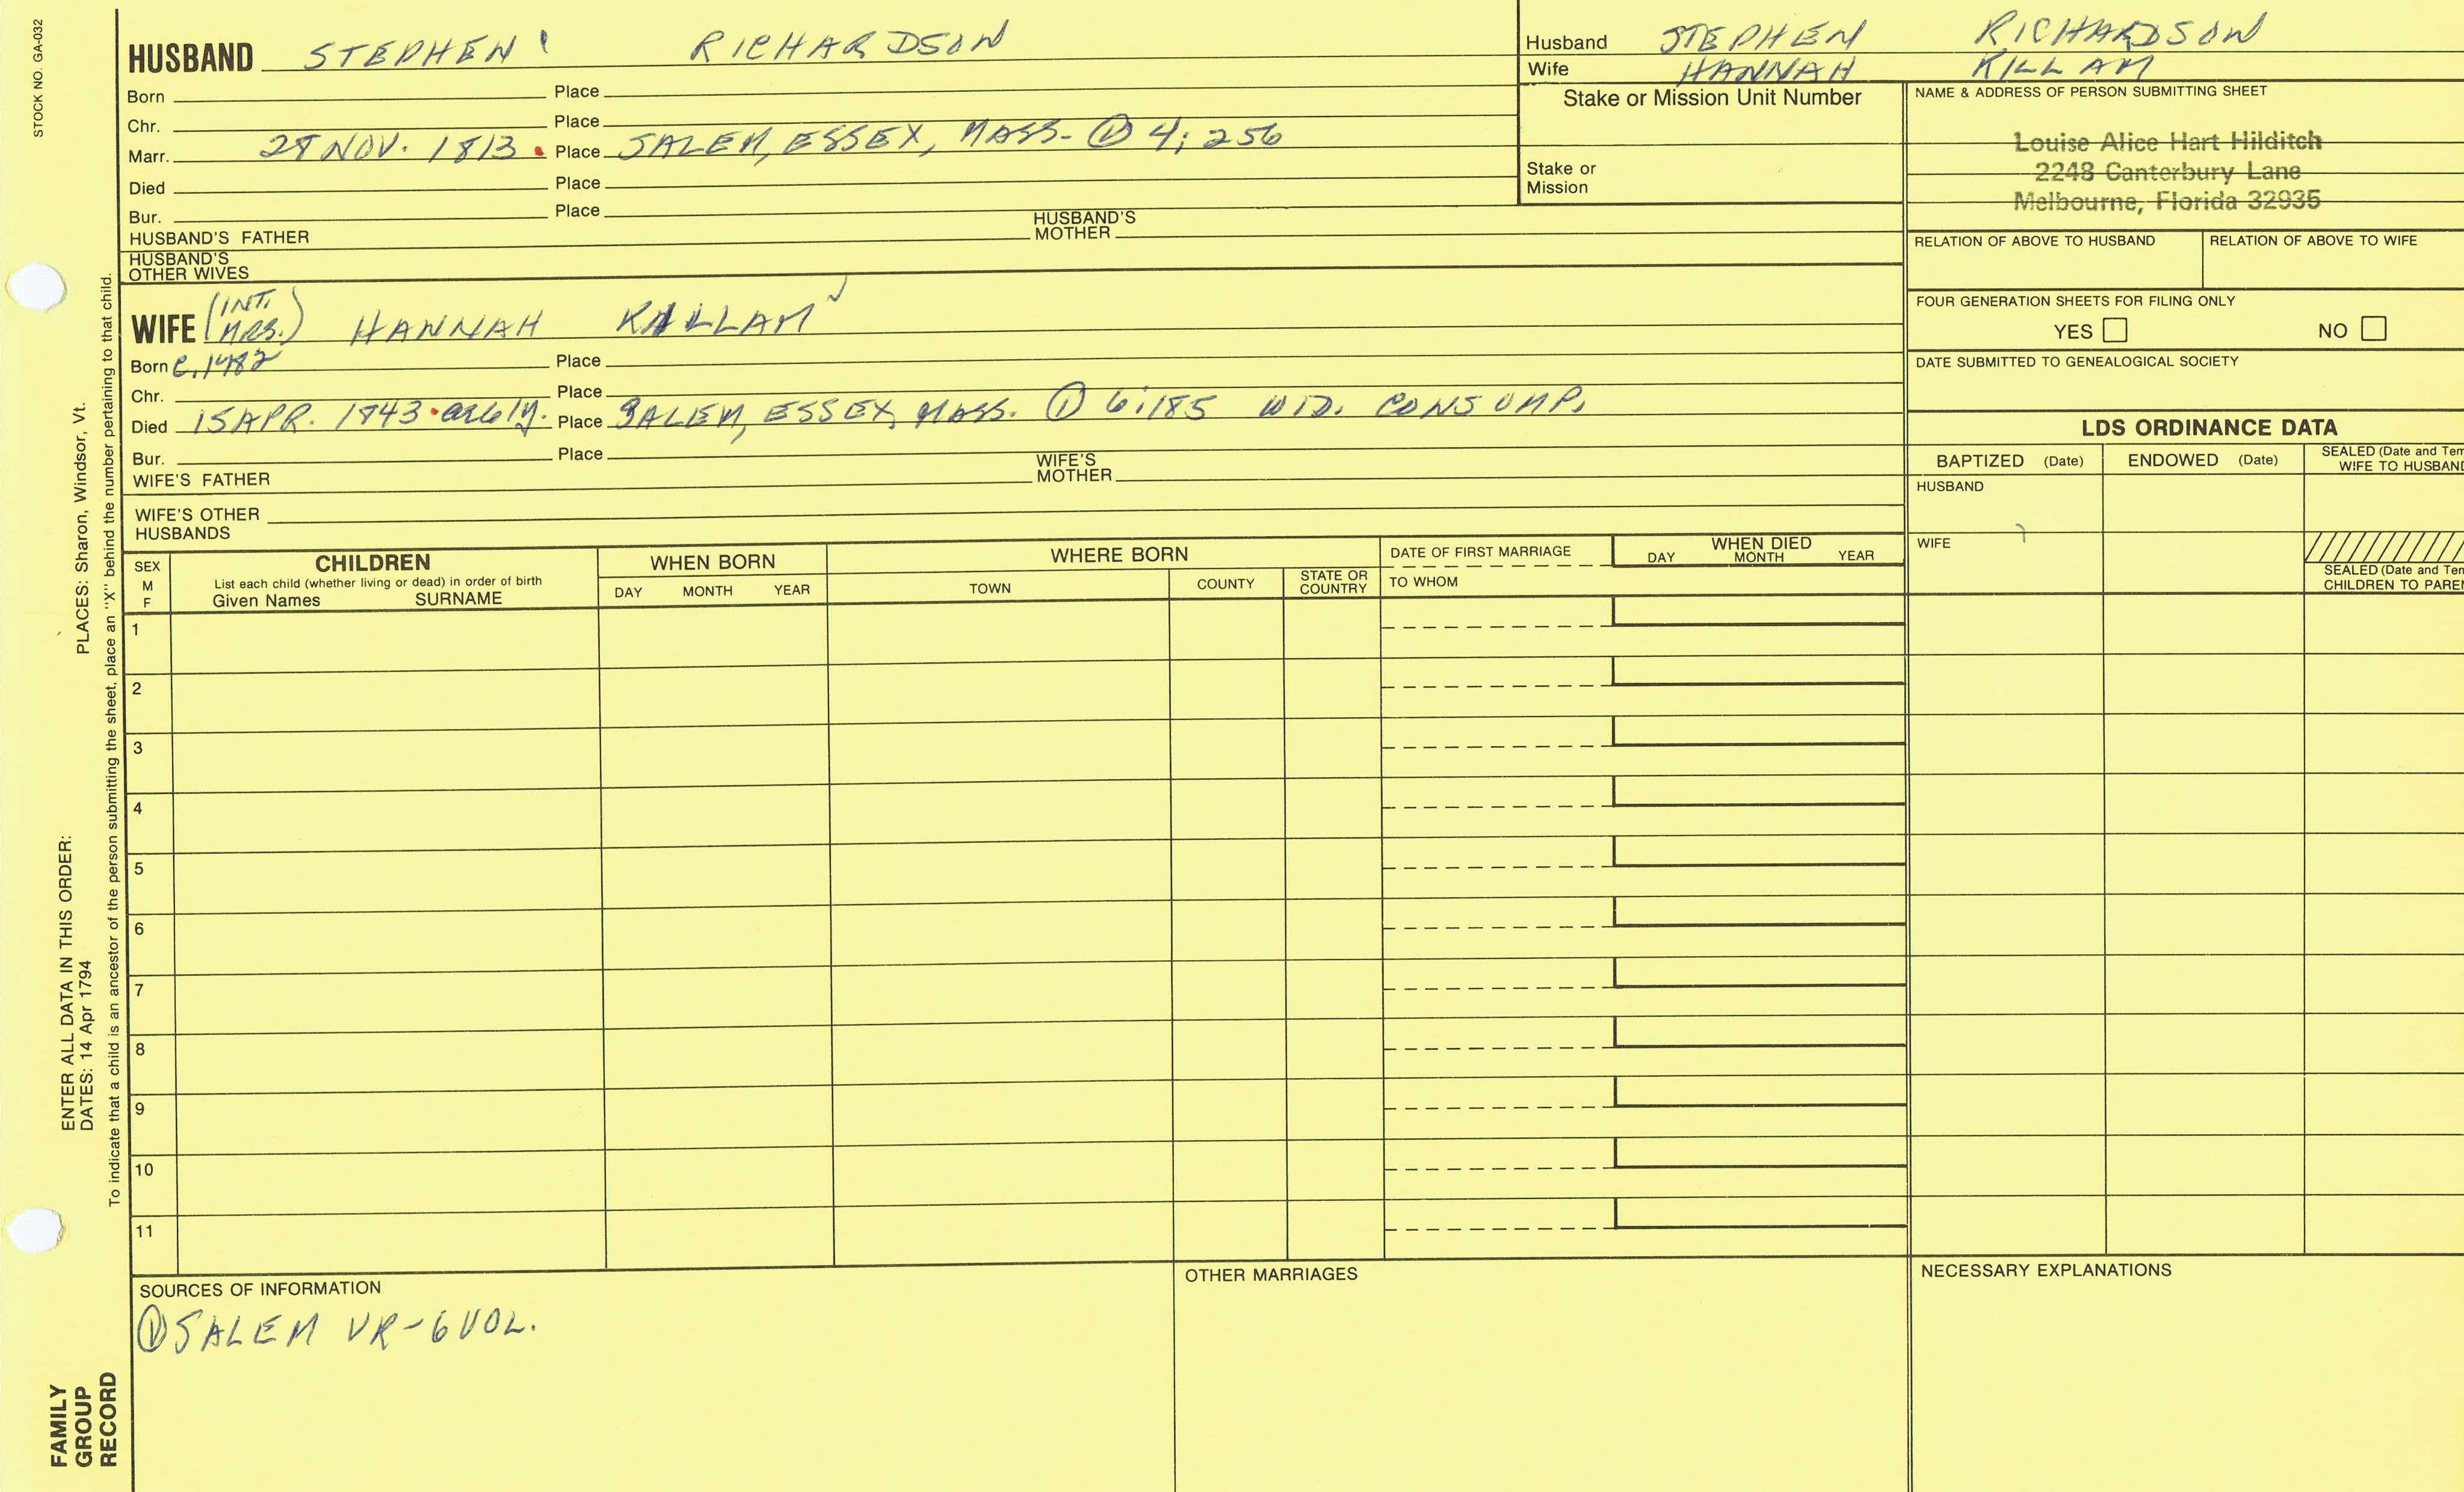 STOCK NO. GA-032
HUSBAND STEPHEN RICHARDSON
Born Place
Chr. Place
Marr. 28 NOV. 1813 • Place SALEM, ESSEX, MASS. ① 4; 256
Died Place
Bur. Place
HUSBAND'S FATHER HUSBAND'S MOTHER
HUSBAND'S
OTHER WIVES
Husband STEPHEN RICHARDSON
Wife HANNAH KILLAM
Stake or Mission Unit Number
Stake or
Mission
NAME & ADDRESS OF PERSON SUBMITTING SHEET
Louise Alice Hart Hilditch
2248 Canterbury Lane
Melbourne, Florida 32935
RELATION OF ABOVE TO HUSBAND RELATION OF ABOVE TO WIFE
FOUR GENERATION SHEETS FOR FILING ONLY
YES NO
DATE SUBMITTED TO GENEALOGICAL SOCIETY
WIFE (INT. MRS.) HANNAH KILLAM
Born C.1782 Place
Chr. Place
Died 15 APR. 1843 • age 61y. Place SALEM, ESSEX, MASS. ① 6:185 WID. CONSUMP.
Bur. Place
WIFE'S FATHER WIFE'S MOTHER
WIFE'S OTHER
HUSBANDS
LDS ORDINANCE DATA
BAPTIZED (Date) ENDOWED (Date) SEALED (Date and Tem
WIFE TO HUSBAND
HUSBAND
WIFE
SEALED (Date and Tem
CHILDREN TO PAREN
SEX
M
F
CHILDREN
List each child (whether living or dead) in order of birth
Given Names SURNAME
WHEN BORN
DAY MONTH YEAR
WHERE BORN
TOWN COUNTY STATE OR
COUNTRY
DATE OF FIRST MARRIAGE
TO WHOM
WHEN DIED
DAY MONTH YEAR
1
2
3
4
5
6
7
8
9
10
11
SOURCES OF INFORMATION
① SALEM VR-6 VOL.
OTHER MARRIAGES
NECESSARY EXPLANATIONS
ENTER ALL DATA IN THIS ORDER:
DATES: 14 Apr 1794 PLACES: Sharon, Windsor, Vt.
To indicate that a child is an ancestor of the person submitting the sheet, place an "X" behind the number pertaining to that child.
FAMILY
GROUP
RECORD